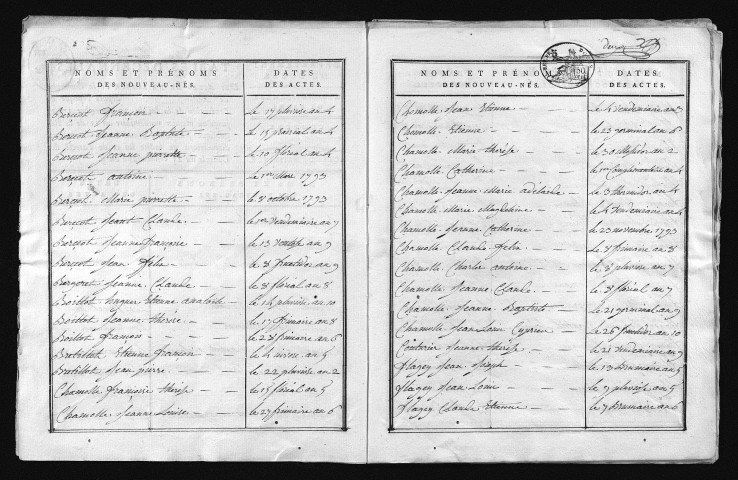 NOMS ET PRÉNOMS DES NOUVEAU-NÉS. DATES DES ACTES.
Borcint françois le 17 pluviose an 4
Borcint Jeanne Baptiste le 18 prairial an 4
Borcint Jeanne pierrette le 10 floréal an 4
Borcint antoine le 1er Mars 1793
Borcint Marie pierrette le 8 octobre 1793
Borcint Jeant Claude le 1er Vendemiaire an 7
Borcint Jeanne françoise le 13 Ventose an 9
Borcint Jean félix le 8 fructidor an 9
Bargeret Jeanne Claude le 8 floréal an 8
Boittot hugues Etienne anatoile le 14 pluviose an 10
Boittot Jeanne thérése le 17 frimaire an 8
Boittot françois le 28 frimaire an 6
Bratillot Etienne françois le 4 nivose an 5
Bratillot Jean pierre le 22 pluviose an 2
Chamolle françoise thérése le 15 floréal an 5
Chamolle Jeanne Louise le 27 frimaire an 6
NOMS ET PRÉNOMS DES NOUVEAU-NÉS. DATES DES ACTES.
Chamolle Jean Etienne le 4 Vendemiaire an 3
Chamolle Etienne le 23 germinal an 6
Chamolle Marie thérése le 30 Messidor an 2
Chamolle Catherine le 1er Complementaire an 4
Chamolle Jeanne Marie adelaide le 3 thermidor an 4
Chamolle Marie Magdeleine le 4 Vendemiaire an 4
Chamolle Jeanne Catherine le 23 novembre 1793
Chamolle Claude félix le 8 frimaire an 8
Chamolle Charles antoine le 8 pluviose an 7
Chamolle Jeanne Claude le 8 floréal an 7
Chamolle Jeanne Baptiste le 21 germinal an 9
Chamolle Jean Louis Cyprien le 26 fructidor an 10
Couturier Jeanne thérése le 21 Vendemiaire an 9
flagey Jean Joseph le 13 Brumaire an 5
flagey Jean Louis le 9 pluviose an 5
flagey Claude Etienne le 7 Brumaire an 6